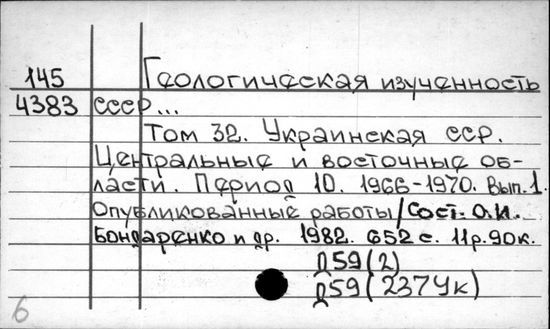 145 Геологическая изученность
4383 СССР...
Том 32. Украинская ССР.
Центральные и восточные об-
ласти. Период 10. 1966-1970. Вып.1.
Опубликованные работы/Сост. О.И.
Бондаренко и др. 1982. 652 с. 11р.90к.
Д59(2)
Д59(237Ук)
6